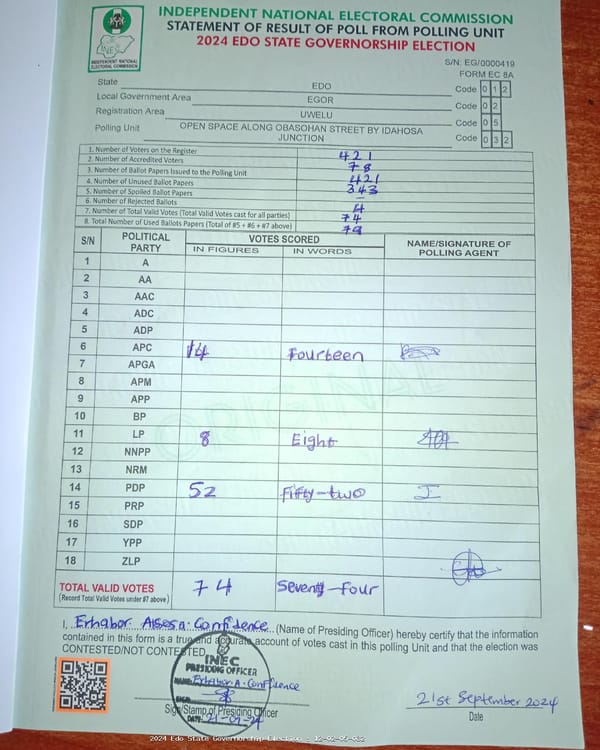 INDEPENDENT NATIONAL ELECTORAL COMMISSION
STATEMENT OF RESULT OF POLL FROM POLLING UNIT
2024 EDO STATE GOVERNORSHIP ELECTION
INEC
INDEPENDENT NATIONAL
ELECTORAL COMMISSION
S/N: EG/0000419
FORM EC 8A
State EDO Code 0 1 2
Local Government Area EGOR Code 0 2
Registration Area UWELU Code 0 5
Polling Unit OPEN SPACE ALONG OBASOHAN STREET BY IDAHOSA JUNCTION Code 0 3 2
1. Number of Voters on the Register 421
2. Number of Accredited Voters 78
3. Number of Ballot Papers Issued to the Polling Unit 421
4. Number of Unused Ballot Papers 343
5. Number of Spoiled Ballot Papers –
6. Number of Rejected Ballots 4
7. Number of Total Valid Votes (Total Valid Votes cast for all parties) 74
8. Total Number of Used Ballots Papers (Total of #5 + #6 + #7 above)
S/N POLITICAL PARTY VOTES SCORED NAME/SIGNATURE OF POLLING AGENT
IN FIGURES IN WORDS
1 A
2 AA
3 AAC
4 ADC
5 ADP
6 APC 14 Fourteen
7 APGA
8 APM
9 APP
10 BP
11 LP 8 Eight
12 NNPP
13 NRM
14 PDP 52 Fifty-two
15 PRP
16 SDP
17 YPP
18 ZLP
ORIGINAL
TOTAL VALID VOTES 74 Seventy-Four
(Record Total Valid Votes under #7 above)
I, Erhabor Confidence (Name of Presiding Officer) hereby certify that the information
contained in this form is a true and accurate account of votes cast in this polling Unit and that the election was
CONTESTED/NOT CONTESTED.
INEC
PRESIDING OFFICER
NAME: Erhabor A. Confidence
SIGN
Sign/Stamp of Presiding Officer
DATE: 21-09-24
21st September 2024
Date
2024 Edo State Governorship Election - 12-02-05-032